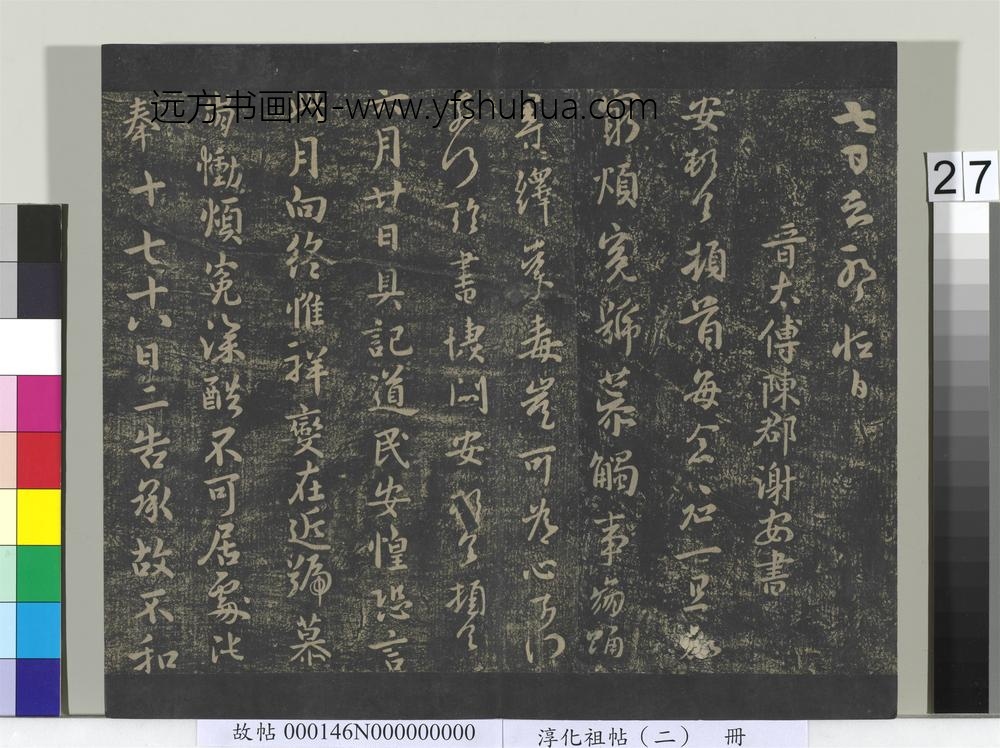 七日
晉太傅陳郡謝安書
安頓首頓首每念君一旦知
窮煩冤號慕觸事傷踊
尋繹荼毒豈可為心奈何
奈何臨書悽悶安頓首頓首
六月廿日具記道民安惶恐言
此月向終惟祥變在近號慕
崩慟煩冤深酷不可居處比
奉十七十八日二告承故不和
远方书画网-www.yfshuhua.com
27
故帖 000146N000000000
淳化祖帖(二) 冊